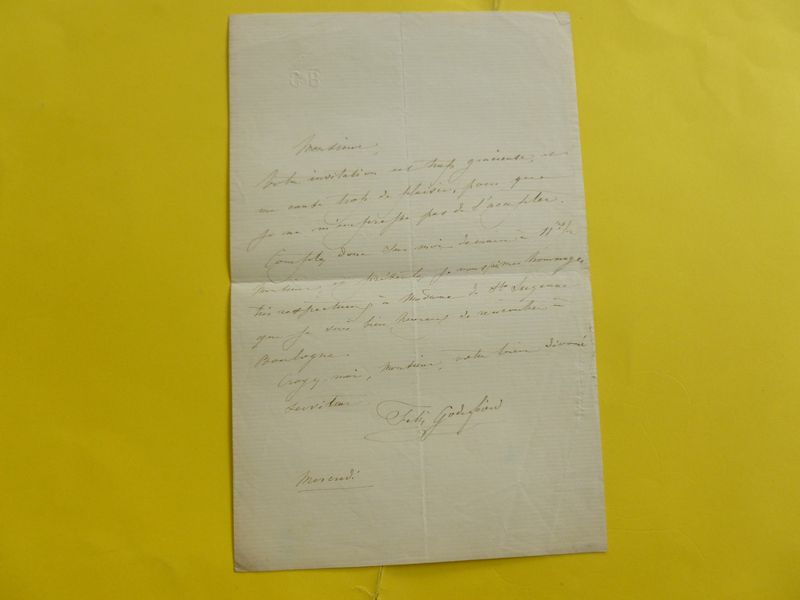 Monsieur,
Votre invitation est trop gracieuse, et
me cause trop de plaisir, pour que
je ne m'empresse pas de l'accepter.
Comptez donc sur moi demain à 11 h 1/2
Monsieur, et présentez je vous prie mes hommages
très respectueux à Madame de Ste Suzanne
que je serai bien heureux de rencontrer à
Boulogne.
Croyez moi, Monsieur, votre bien dévoué
serviteur
Félix Godefroid
Mercredi